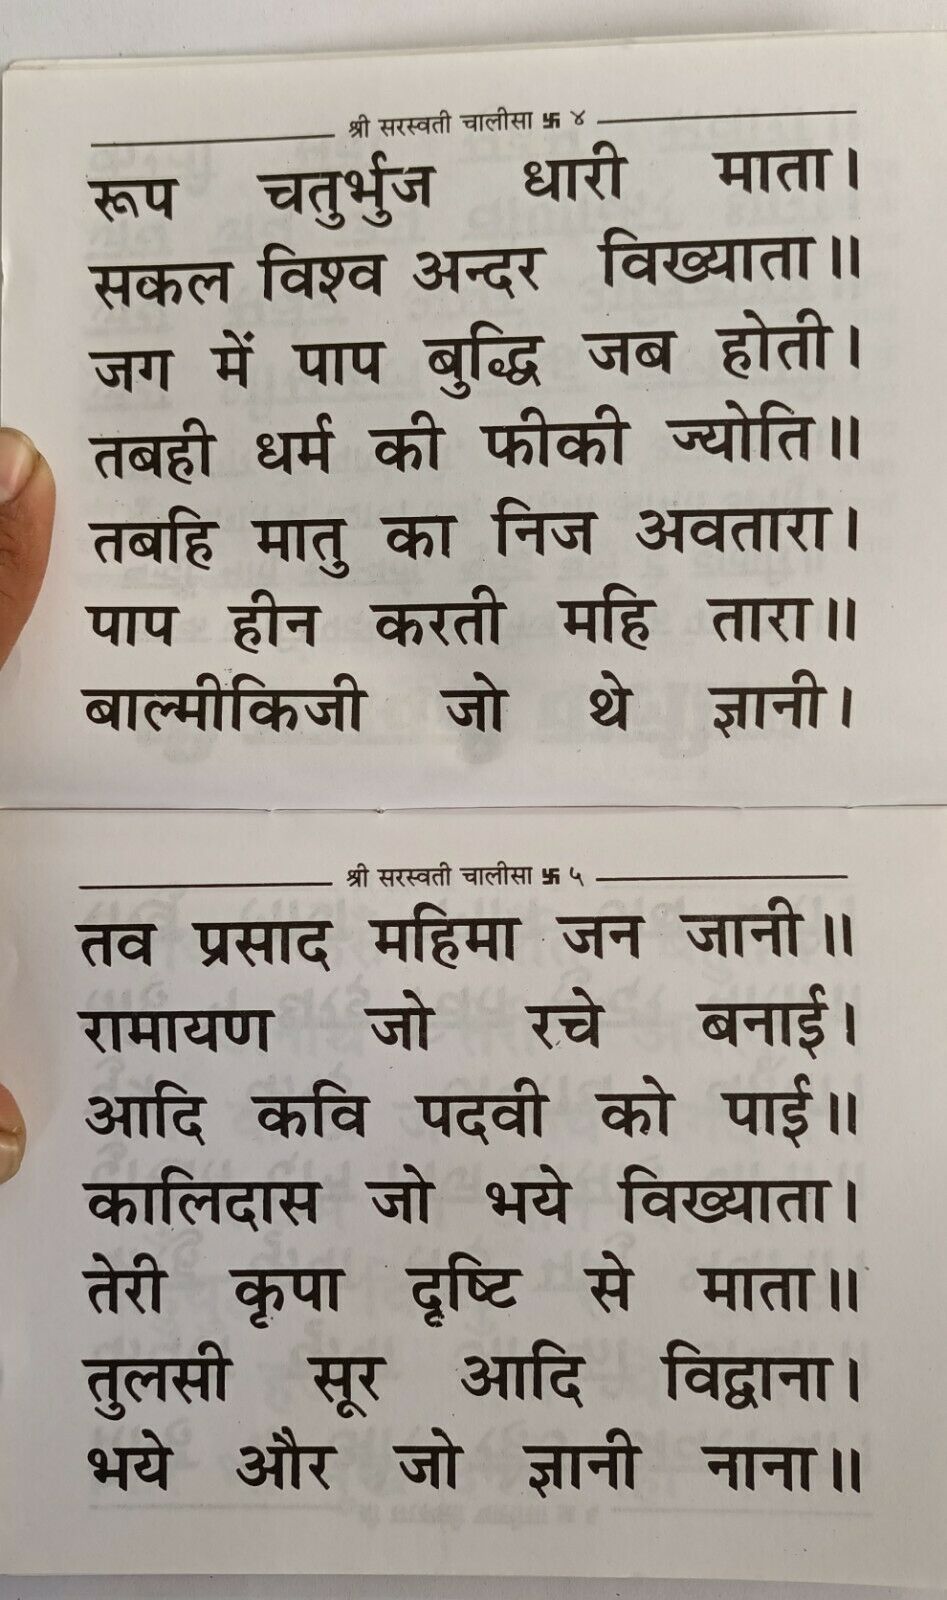 श्री सरस्वती चालीसा 卐 ४
रूप चतुर्भुज धारी माता।
सकल विश्व अन्दर विख्याता॥
जग में पाप बुद्धि जब होती।
तबही धर्म की फीकी ज्योति॥
तबहि मातु का निज अवतारा।
पाप हीन करती महि तारा॥
बाल्मीकिजी जो थे ज्ञानी।
श्री सरस्वती चालीसा 卐 ५
तव प्रसाद महिमा जन जानी॥
रामायण जो रचे बनाई।
आदि कवि पदवी को पाई॥
कालिदास जो भये विख्याता।
तेरी कृपा दृष्टि से माता॥
तुलसी सूर आदि विद्वाना।
भये और जो ज्ञानी नाना॥